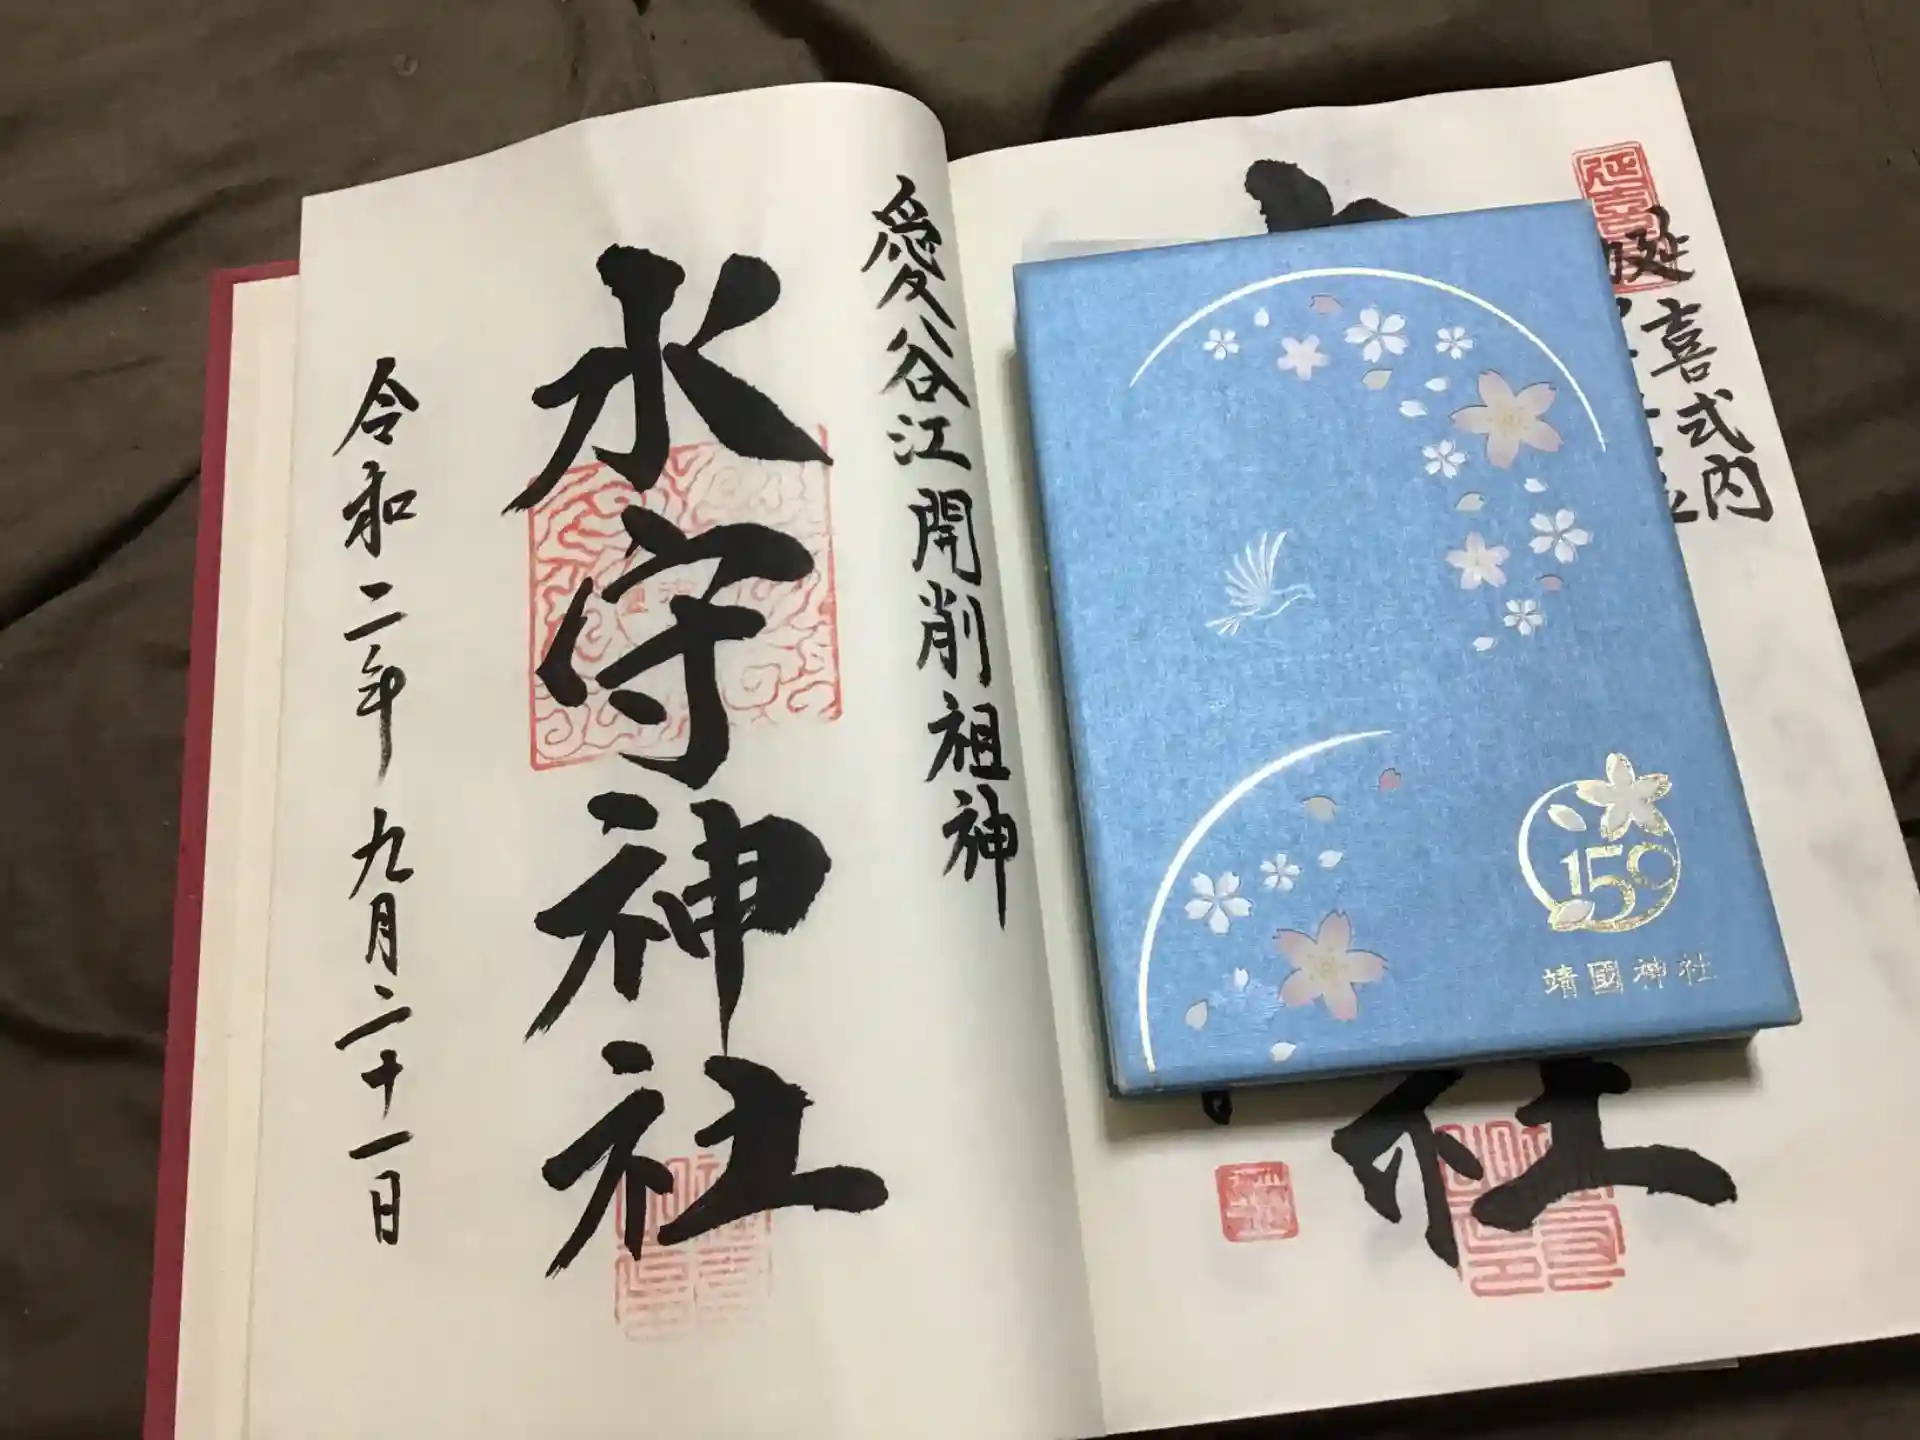 延喜式内
社
愛谷江開削祖神
水守神社
令和二年九月二十一日
150
靖國神社